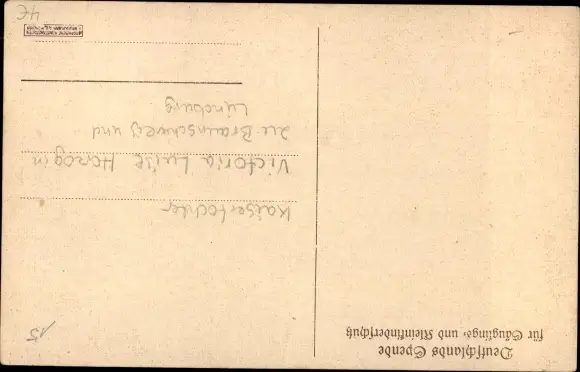 Deutschlands Spende
für Säuglings- und Kleinkinderschutz
15
Kaisertochter
Victoria Luise Herzogin
zu Braunschweig und
Lüneburg
4€